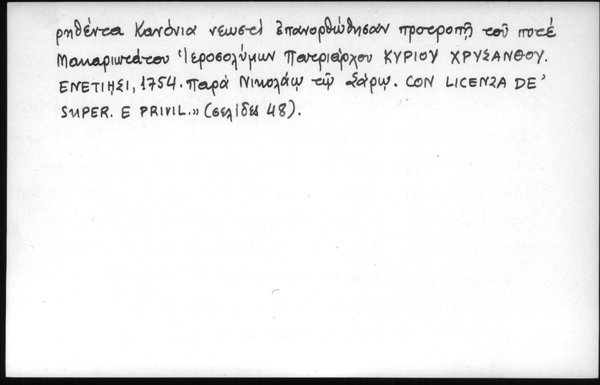 ρηθέντα Κανόνια νεωστὶ ἐπανορθώθησαν προτροπῇ τοῦ ποτέ
Μακαριωτάτου Ἱεροσολύμων Πατριάρχου ΚΥΡΙΟΥ ΧΡΥΣΑΝΘΟΥ.
ΕΝΕΤΙΗΣΙ, 1754. Παρὰ Νικολάῳ τῷ Σάρῳ. CON LICENZA DE'
SUPER. E PRIVIL.» (σελίδες 48).